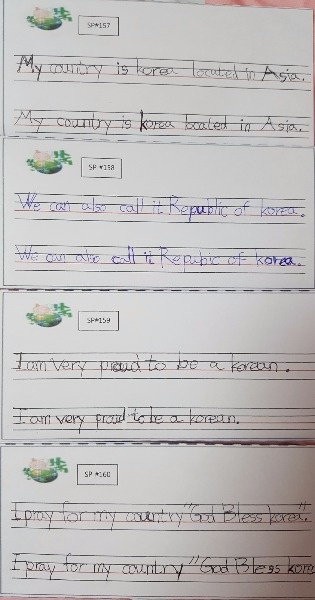 SP#157
My country is korea located in Asia.
My country is korea located in Asia.
SP #158
We can also call it Republic of korea.
We can also call it Republic of korea.
SP#159
I am very proud to be a korean.
I am very proud to be a korean.
SP #160
I pray for my country "God Bless korea".
I pray for my country "God Bless kore